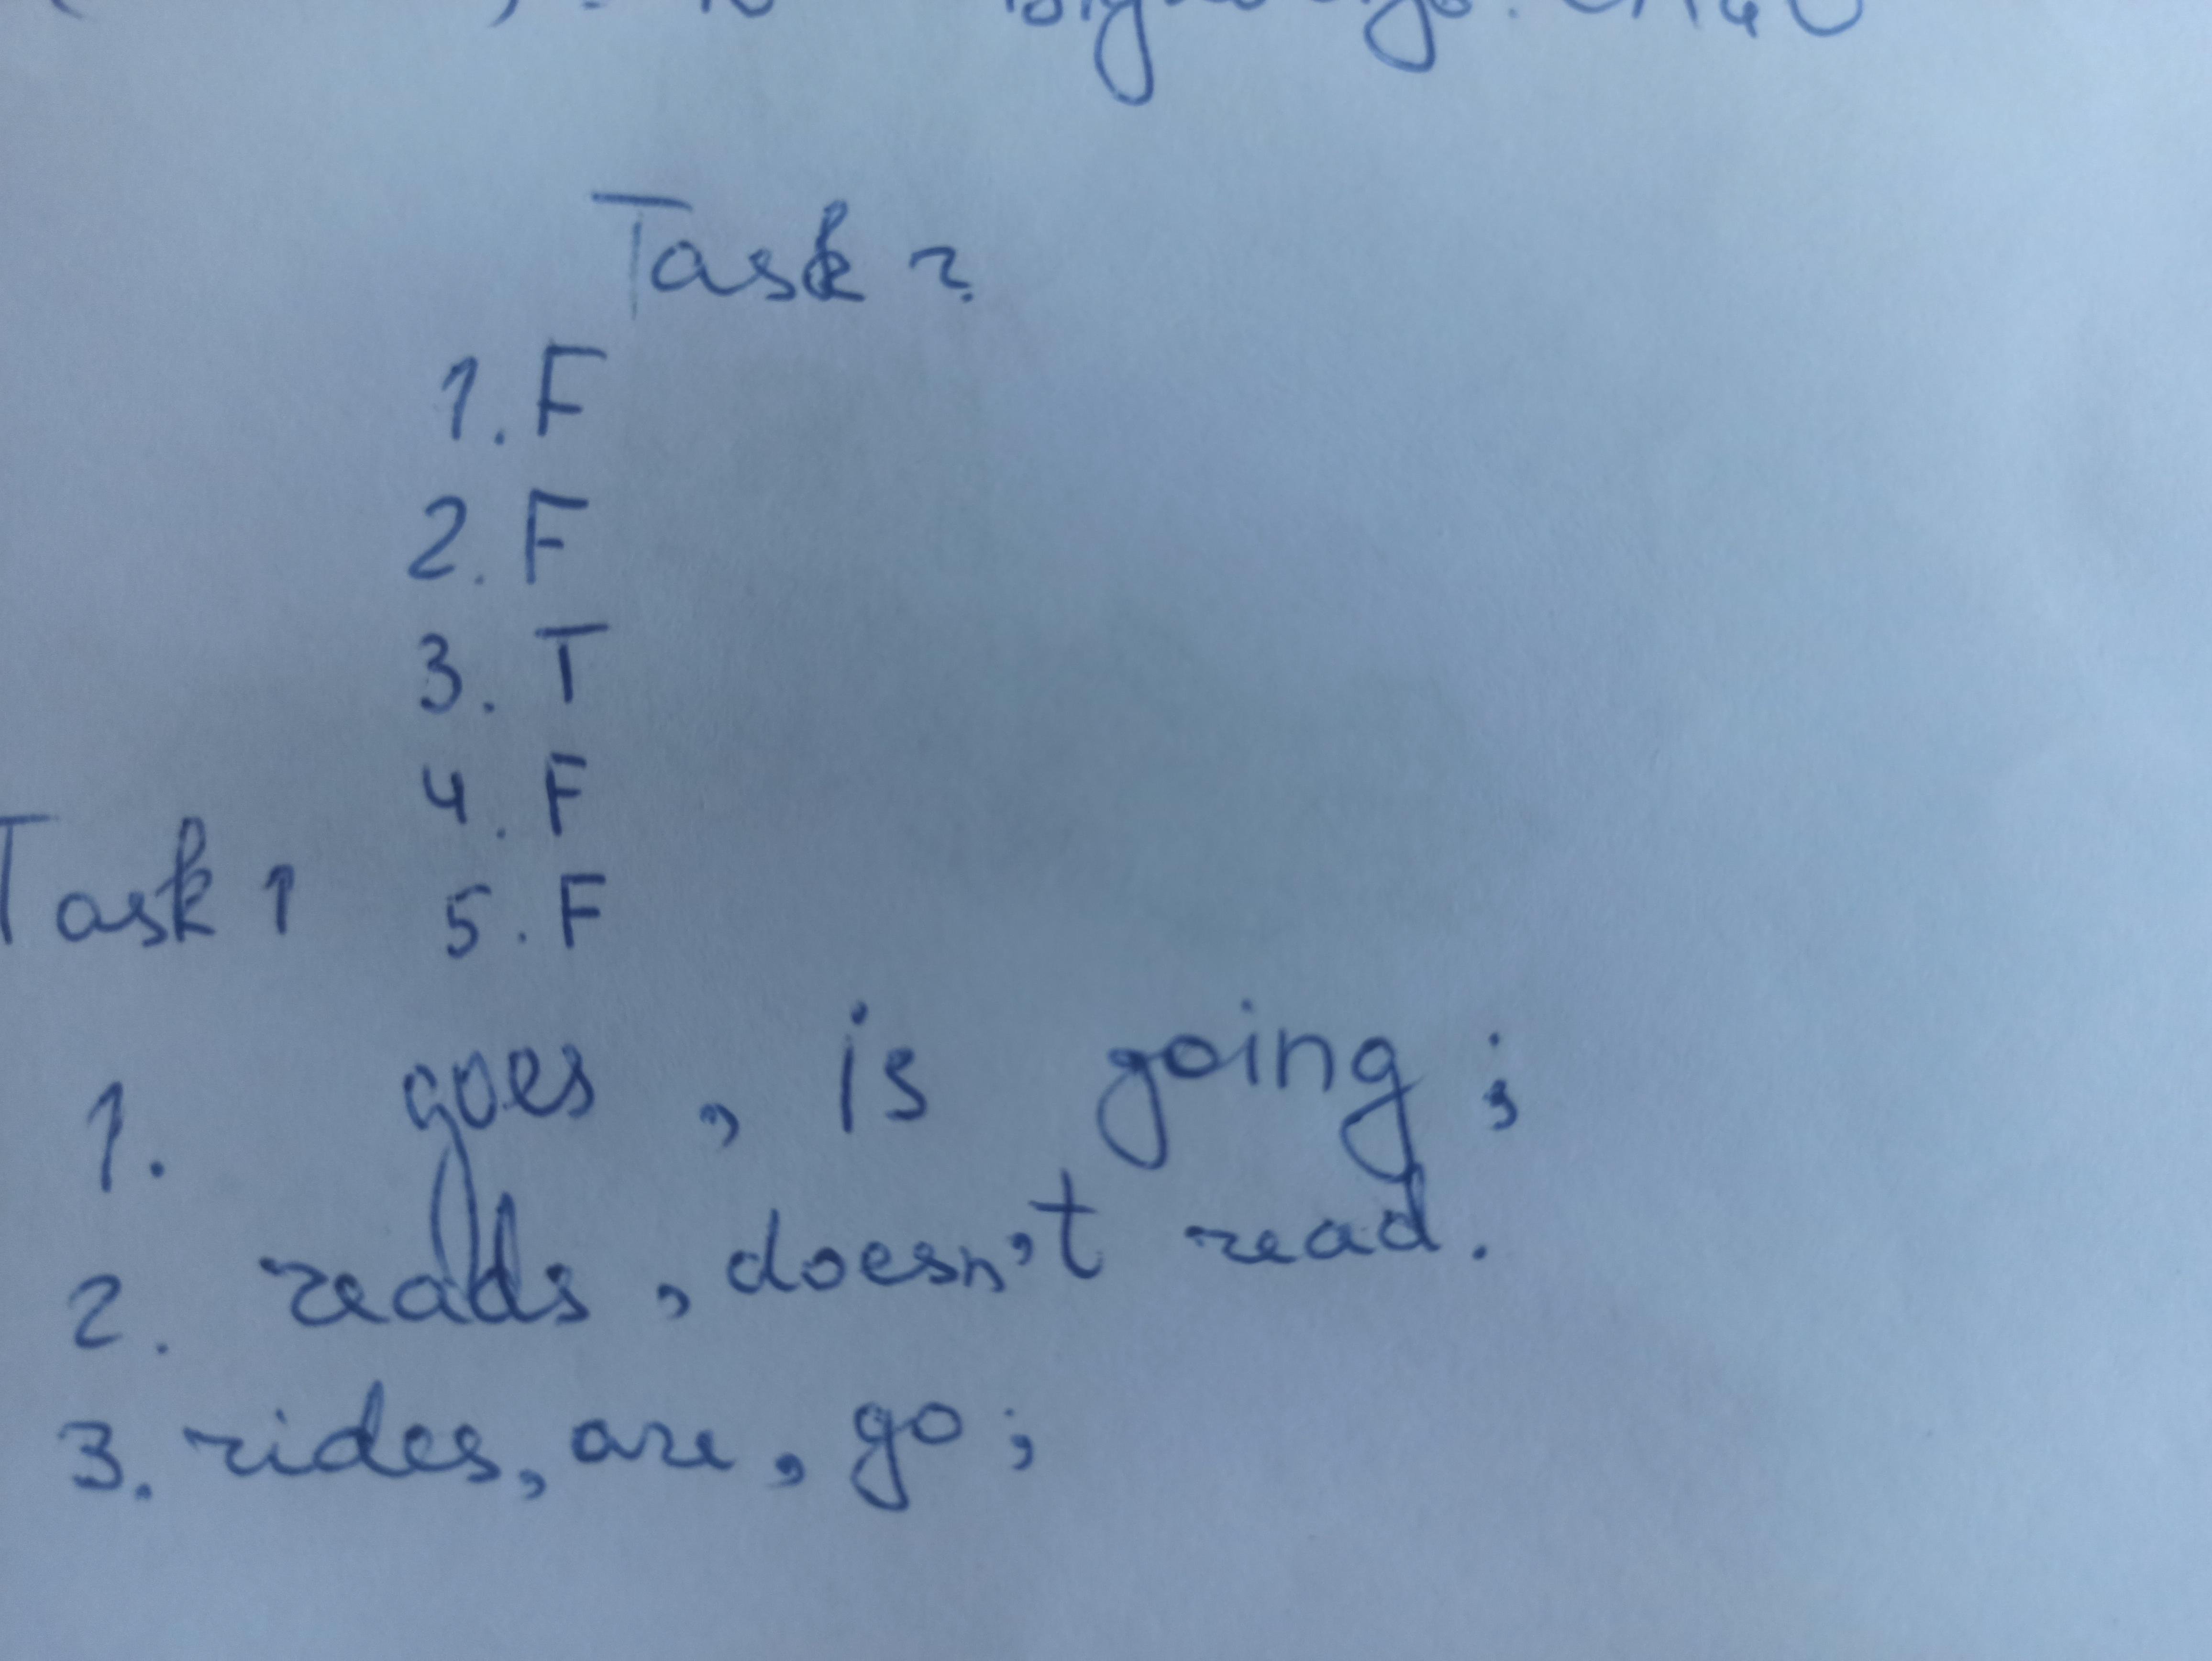 Task 2
1. F
2. F
3. T
4. F
5. F
Task 1
1. goes, is going;
2. reads, doesn't read.
3. rides, are, go;